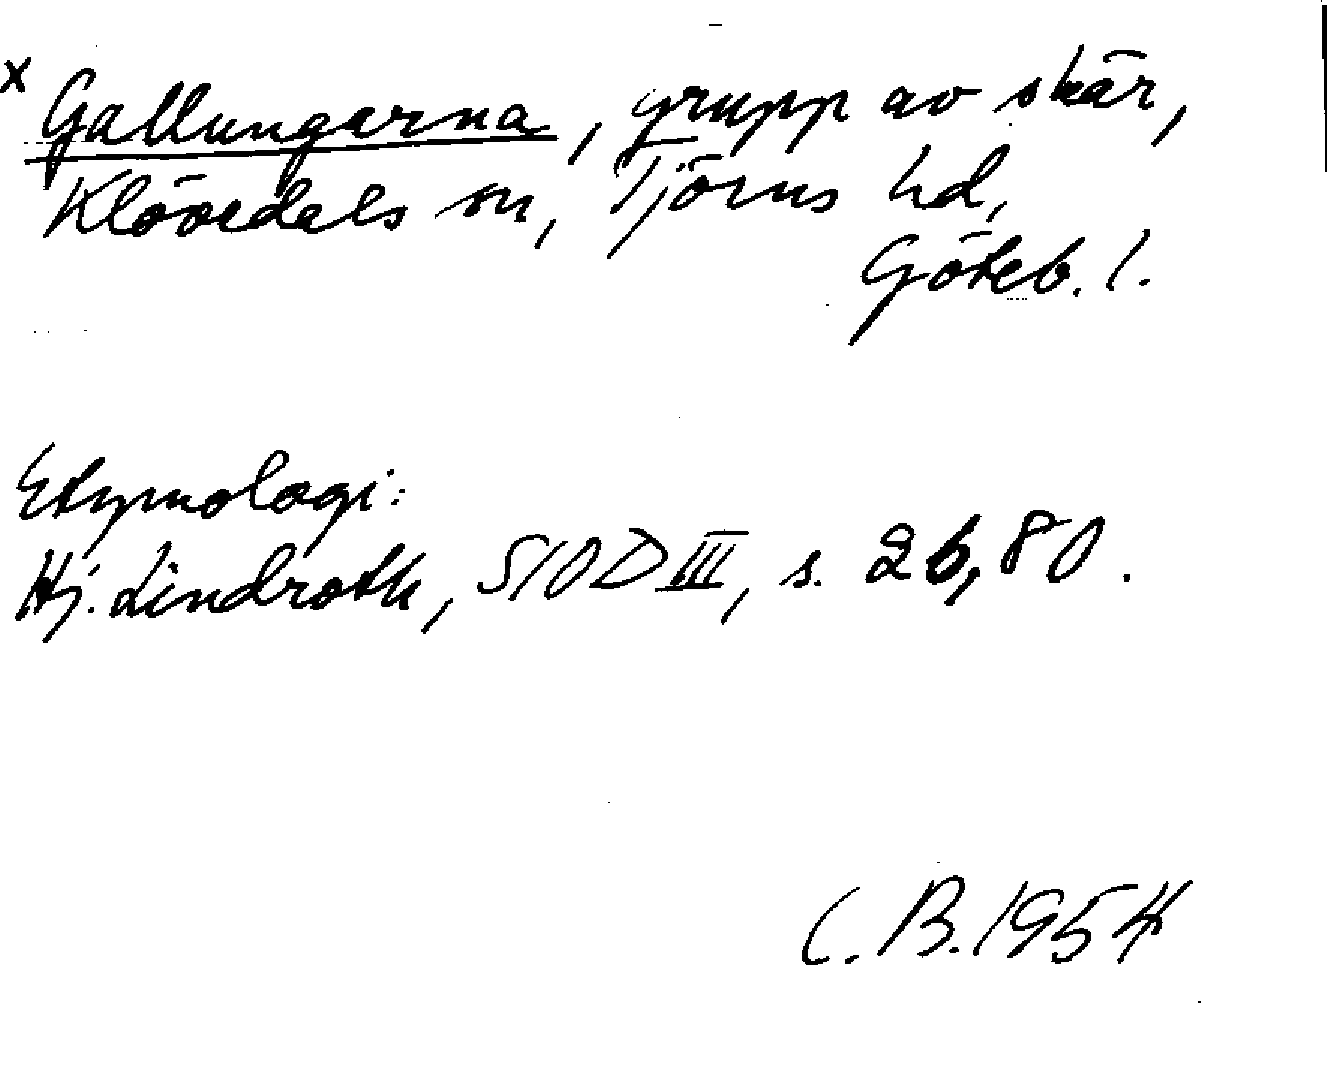 x Gallungarna, grupp av skär,
Klövedals sn, Tjörns hd,
Göteb. l.
Etymologi:
Hj. Lindroth, SIOD III, s. 26, 80.
C. B. 1954